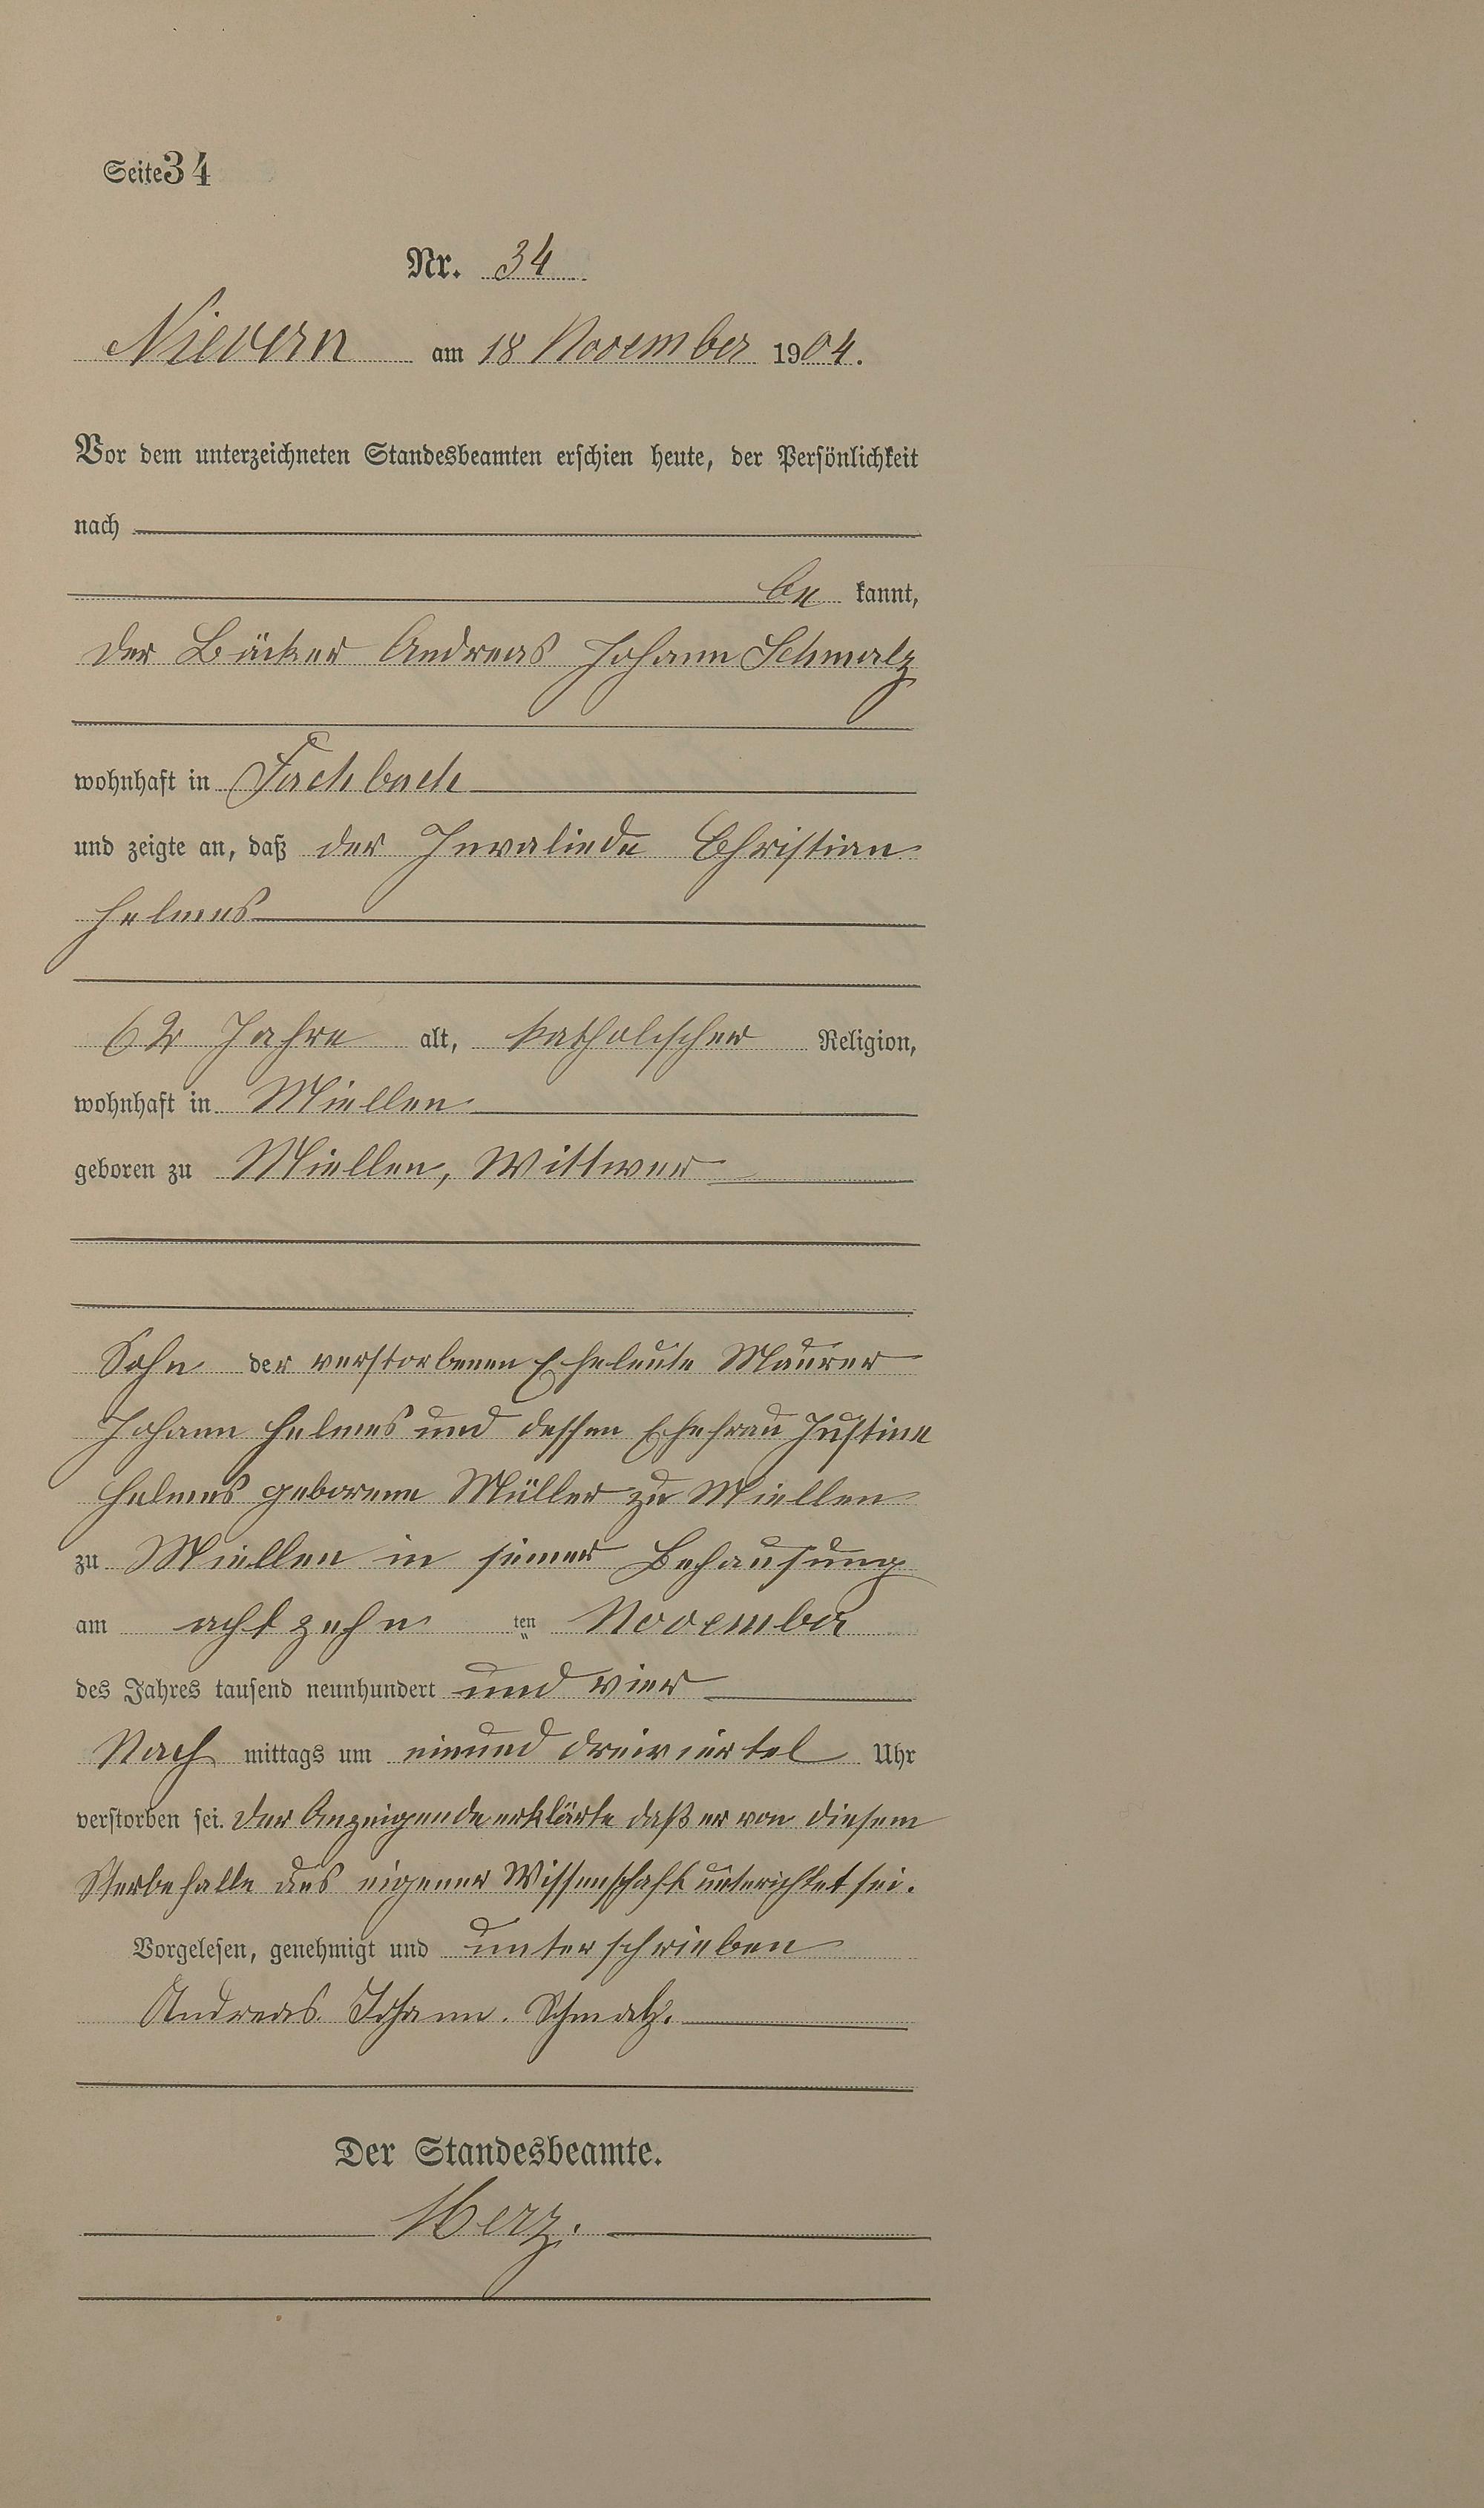 Seite 34
Nr. 34
Nievern am 18 November 1904.
Vor dem unterzeichneten Standesbeamten erschien heute, der Persönlichkeit
nach
be kannt,
der Bäcker Andreas Johann Schmalz
wohnhaft in Fachbach
und zeigte an, daß der Invaliede Christian
Helmes
62 Jahre alt, katholischer Religion,
wohnhaft in Miellen
geboren zu Miellen, Wittwer
Sohn der verstorbenen Eheleute Maurer
Johann Helmes und dessen Ehefrau Justine
Helmes geborene Müller zu Miellen
zu Miellen in seiner Behausung
am achtzehn ten November
des Jahres tausend neunhundert und vier
Nach mittags um einund dreiviertel Uhr
verstorben sei. Der Anzeigende erklärte daß er von diesem
Sterbefalle aus eigener Wissenschaft unterichtet sei.
Vorgelesen, genehmigt und unterschrieben
Andreas Johann. Schmalz.
Der Standesbeamte.
Herz.